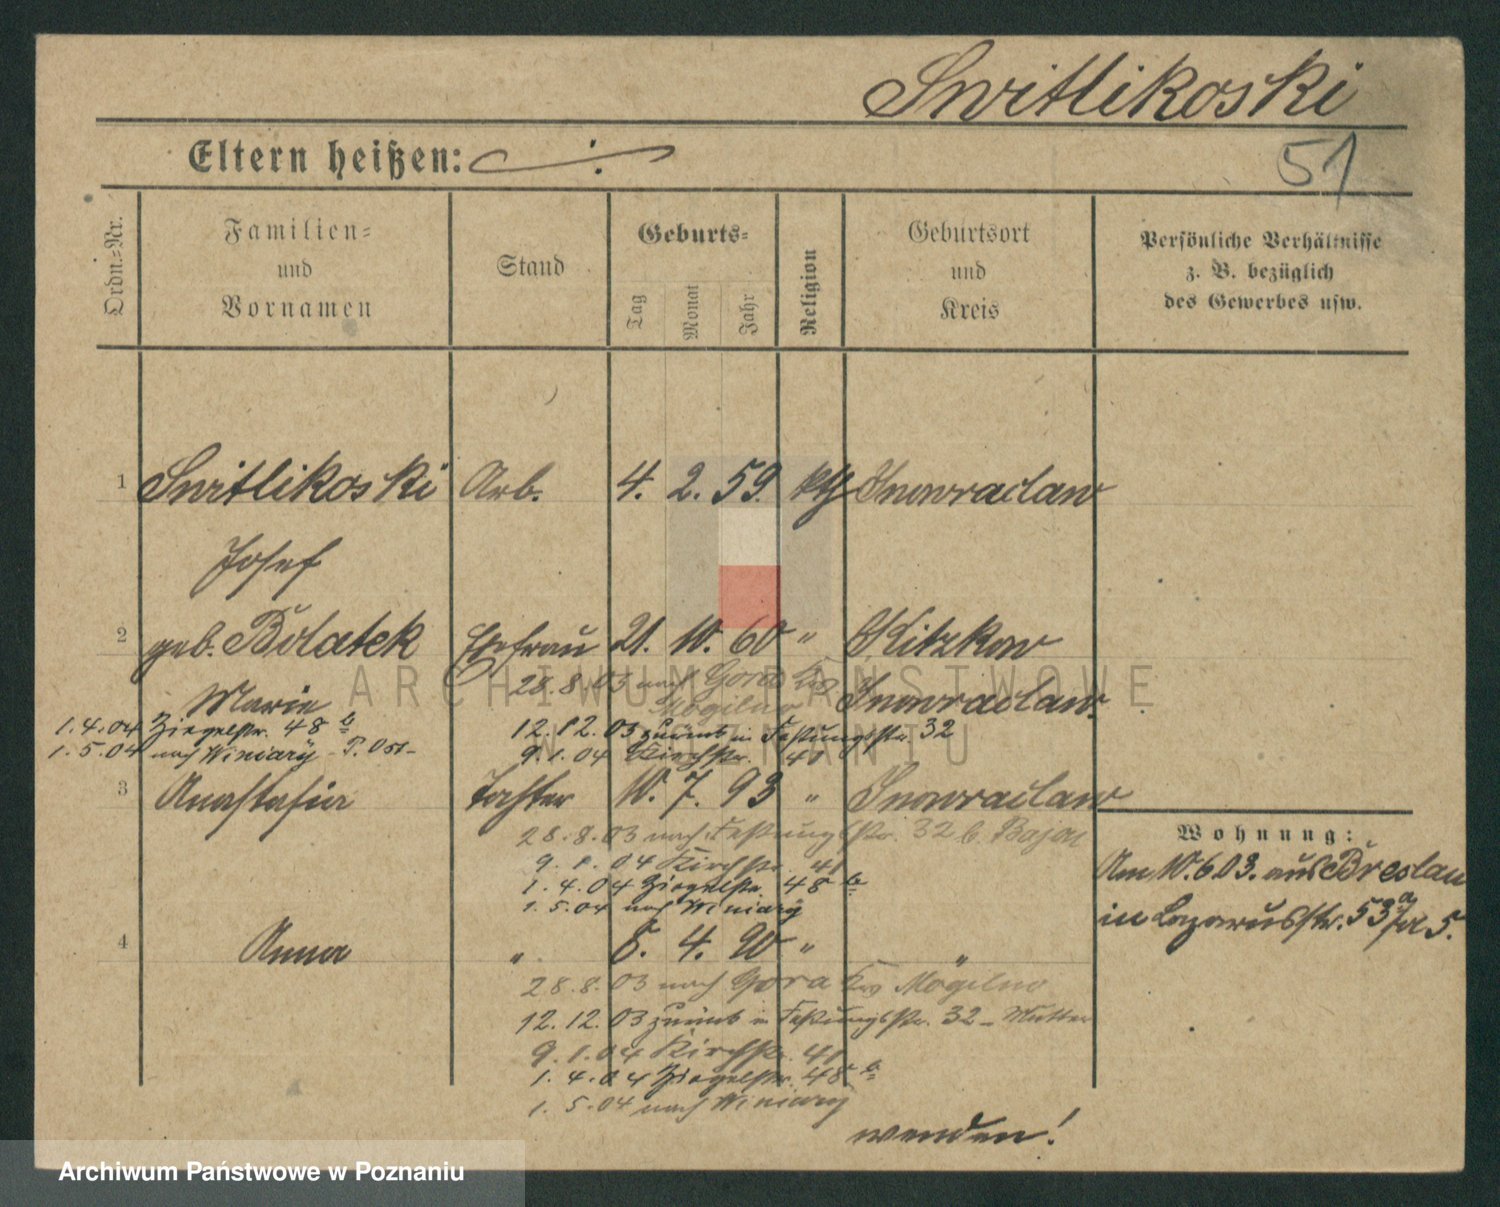 Switlikoski
51
Eltern heißen: ./.
Ordn.=Nr.
Familien=
und
Vornamen
Stand
Geburts=
Tag
Monat
Jahr
Religion
Geburtsort
und
Kreis
Persönliche Verhältnisse
z. B. bezüglich
des Gewerbes usw.
1 Switlikoski Arb. 4. 2. 59. kth Inowraclaw
Josef
2 geb. Bolatek Ehefrau 21. 10. 60 " Kitzkow
Marie 28.8.03 nach Gora Krs Inowraclaw.
Mogilno
1.4.04 Ziegelstr. 48 b 12.12.03 zurück in Festungsstr. 32
1.5.04 nach Winiary P. Ost- 9.1.04 Kirchstr. 41
3 Anastasia Tochter 10. 7. 93 " Inowraclaw
28.8.03 nach Festungsstr. 32 b. Bajon
9.1.04 Kirchstr. 41
1.4.04 Ziegelstr. 48 b
1.5.04 nach Winiary
Wohnung:
Am 10.6.03. aus Breslau
in Lazarusstr. 53a
4 Anna " 5. 4. 90 " "
28.8.03 nach Gora Krs Mogilno
12.12.03 zurück in Festungsstr. 32 - Mutter
9.1.04 Kirchstr. 41
1.4.04 Ziegelstr. 48 b
1.5.04 nach Winiary
wenden!
ARCHIWUM PAŃSTWOWE
W POZNANIU
Archiwum Państwowe w Poznaniu